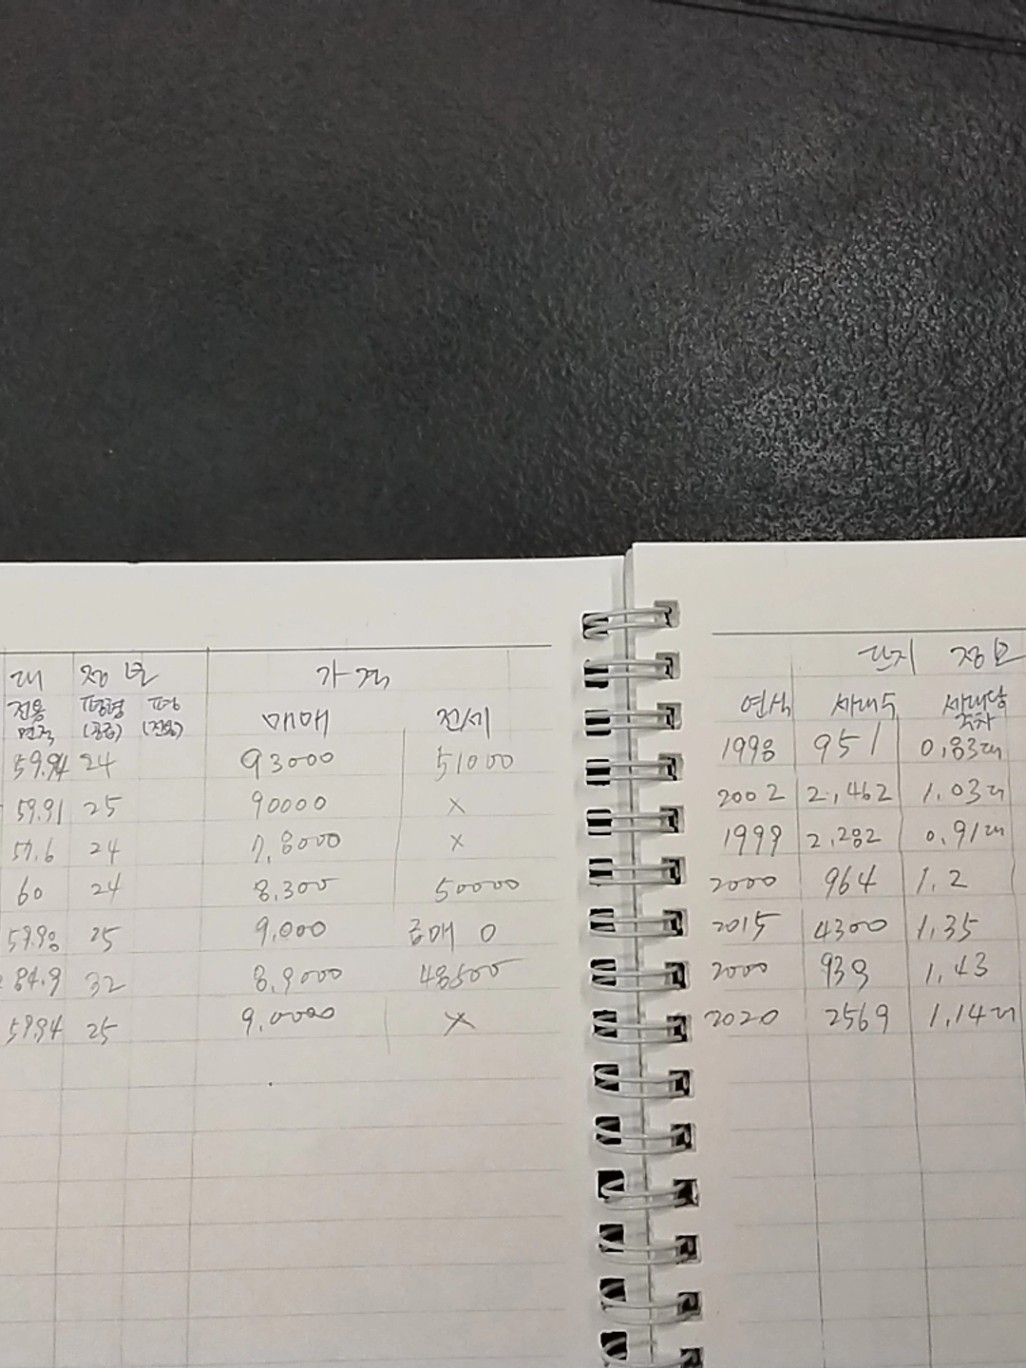 가격
단지 정보
전용 면적 평형 (공급) 평 (전용) 매매 전세 연식 세대수 세대당 주차
59.94 24 93000 51000 1998 951 0.83대
59.91 25 90000 × 2002 2,462 1.03대
24 7,8000 × 1999 2,282 0.91대
60 24 8,300 50000 2000 964 1.2
59.98 25 9,000 매 0 2015 4300 1.35
84.9 32 8,9000 48500 2000 938 1,43
59.94 25 9,0000 × 2020 2569 1.14대